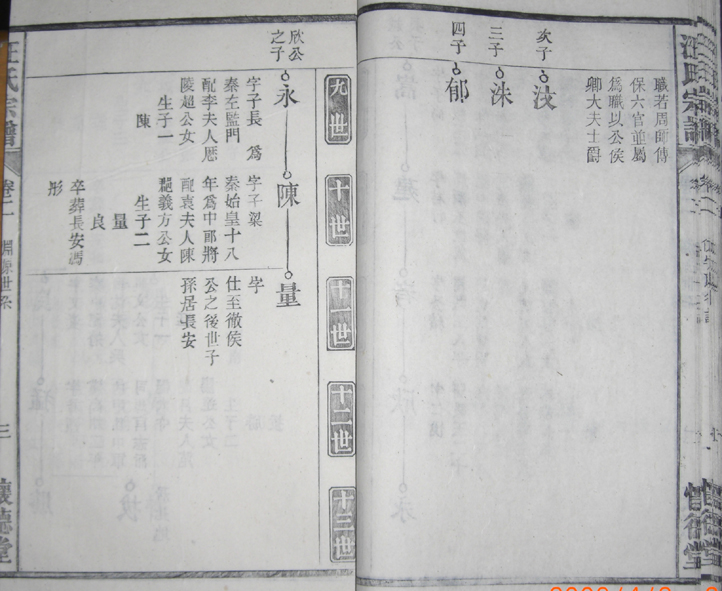 汪氏宗譜
卷二
職若周師傅
保六官並屬
爲職以公侯
卿大夫士爵
次子
汶
三子
洙
四子
郁
九世
十世
十一世
十二世
十三世
欣公
之子
永
字子長 爲
秦左監門
配李夫人厯
陵超公女
生子一
陳
陳
字子粱
秦始皇十八
年爲中郎將
配袁夫人陳
麗義方公女
生子二
量
良
卒葬長安馮
形
量
字
仕至徹侯
公之後世子
孫居長安
汪氏宗譜
卷二
淵源世系
三
懷德堂